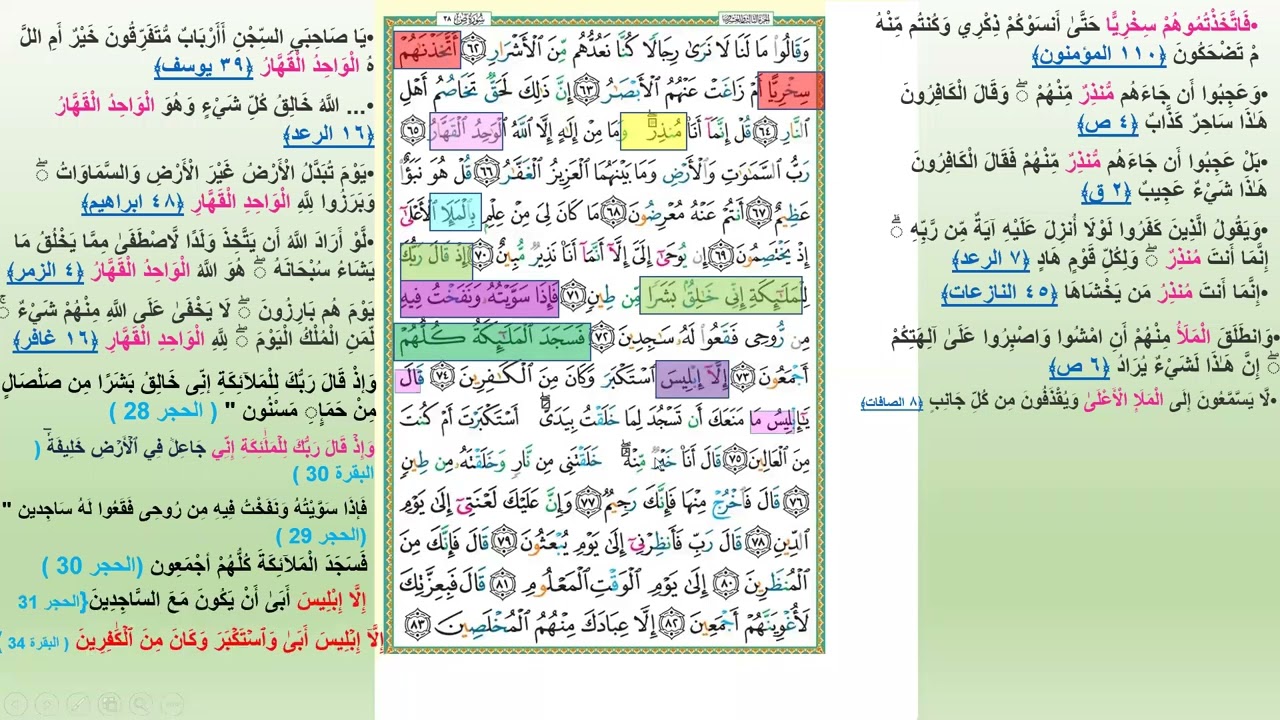 •فَاتَّخَذْتُمُوهُمْ سِخْرِيًّا حَتَّىٰ أَنسَوْكُمْ ذِكْرِي وَكُنتُم مِّنْهُ
مْ تَضْحَكُونَ ﴿١١٠ المؤمنون﴾
•وَعَجِبُوا أَن جَاءَهُم مُّنذِرٌ مِّنْهُمْ ۖ وَقَالَ الْكَافِرُونَ
هَٰذَا سَاحِرٌ كَذَّابٌ ﴿٤ ص﴾
•بَلْ عَجِبُوا أَن جَاءَهُم مُّنذِرٌ مِّنْهُمْ فَقَالَ الْكَافِرُونَ
هَٰذَا شَيْءٌ عَجِيبٌ ﴿٢ ق﴾
•وَيَقُولُ الَّذِينَ كَفَرُوا لَوْلَا أُنزِلَ عَلَيْهِ آيَةٌ مِّن رَّبِّهِ ۗ
إِنَّمَا أَنتَ مُنذِرٌ ۖ وَلِكُلِّ قَوْمٍ هَادٍ ﴿٧ الرعد﴾
•إِنَّمَا أَنتَ مُنذِرُ مَن يَخْشَاهَا ﴿٤٥ النازعات﴾
•وَانطَلَقَ الْمَلَأُ مِنْهُمْ أَنِ امْشُوا وَاصْبِرُوا عَلَىٰ آلِهَتِكُمْ
ۖ إِنَّ هَٰذَا لَشَيْءٌ يُرَادُ ﴿٦ ص﴾
•لَّا يَسَّمَّعُونَ إِلَى الْمَلَإِ الْأَعْلَىٰ وَيُقْذَفُونَ مِن كُلِّ جَانِبٍ ﴿٨ الصافات﴾
سُورَةُ صٓ ٣٨
وَقَالُوا۟ مَا لَنَا لَا نَرَىٰ رِجَالًا كُنَّا نَعُدُّهُم مِّنَ ٱلْأَشْرَارِ ٦٢ أَتَّخَذْنَٰهُمْ
سِخْرِيًّا أَمْ زَاغَتْ عَنْهُمُ ٱلْأَبْصَٰرُ ٦٣ إِنَّ ذَٰلِكَ لَحَقٌّ تَخَاصُمُ أَهْلِ
ٱلنَّارِ ٦٤ قُلْ إِنَّمَآ أَنَا۠ مُنذِرٌ ۖ وَمَا مِنْ إِلَٰهٍ إِلَّا ٱللَّهُ ٱلْوَٰحِدُ ٱلْقَهَّارُ ٦٥
رَبُّ ٱلسَّمَٰوَٰتِ وَٱلْأَرْضِ وَمَا بَيْنَهُمَا ٱلْعَزِيزُ ٱلْغَفَّٰرُ ٦٦ قُلْ هُوَ نَبَؤٌا۟
عَظِيمٌ ٦٧ أَنتُمْ عَنْهُ مُعْرِضُونَ ٦٨ مَا كَانَ لِىَ مِنْ عِلْمٍۭ بِٱلْمَلَإِ ٱلْأَعْلَىٰٓ
إِذْ يَخْتَصِمُونَ ٦٩ إِن يُوحَىٰٓ إِلَىَّ إِلَّآ أَنَّمَآ أَنَا۠ نَذِيرٌ مُّبِينٌ ٧٠ إِذْ قَالَ رَبُّكَ
لِلْمَلَٰٓئِكَةِ إِنِّى خَٰلِقٌۢ بَشَرًا مِّن طِينٍ ٧١ فَإِذَا سَوَّيْتُهُۥ وَنَفَخْتُ فِيهِ
مِن رُّوحِى فَقَعُوا۟ لَهُۥ سَٰجِدِينَ ٧٢ فَسَجَدَ ٱلْمَلَٰٓئِكَةُ كُلُّهُمْ
أَجْمَعُونَ ٧٣ إِلَّآ إِبْلِيسَ ٱسْتَكْبَرَ وَكَانَ مِنَ ٱلْكَٰفِرِينَ ٧٤ قَالَ
يَٰٓإِبْلِيسُ مَا مَنَعَكَ أَن تَسْجُدَ لِمَا خَلَقْتُ بِيَدَىَّ ۖ أَسْتَكْبَرْتَ أَمْ كُنتَ
مِنَ ٱلْعَالِينَ ٧٥ قَالَ أَنَا۠ خَيْرٌ مِّنْهُ ۖ خَلَقْتَنِى مِن نَّارٍ وَخَلَقْتَهُۥ مِن طِينٍ
٧٦ قَالَ فَٱخْرُجْ مِنْهَا فَإِنَّكَ رَجِيمٌ ٧٧ وَإِنَّ عَلَيْكَ لَعْنَتِىٓ إِلَىٰ يَوْمِ
ٱلدِّينِ ٧٨ قَالَ رَبِّ فَأَنظِرْنِىٓ إِلَىٰ يَوْمِ يُبْعَثُونَ ٧٩ قَالَ فَإِنَّكَ مِنَ
ٱلْمُنظَرِينَ ٨٠ إِلَىٰ يَوْمِ ٱلْوَقْتِ ٱلْمَعْلُومِ ٨١ قَالَ فَبِعِزَّتِكَ
لَأُغْوِيَنَّهُمْ أَجْمَعِينَ ٨٢ إِلَّا عِبَادَكَ مِنْهُمُ ٱلْمُخْلَصِينَ ٨٣
•يَا صَاحِبَيِ السِّجْنِ أَأَرْبَابٌ مُّتَفَرِّقُونَ خَيْرٌ أَمِ اللَّ
هُ الْوَاحِدُ الْقَهَّارُ ﴿٣٩ يوسف﴾
•... اللَّهُ خَالِقُ كُلِّ شَيْءٍ وَهُوَ الْوَاحِدُ الْقَهَّارُ
﴿١٦ الرعد﴾
•يَوْمَ تُبَدَّلُ الْأَرْضُ غَيْرَ الْأَرْضِ وَالسَّمَاوَاتُ ۖ
وَبَرَزُوا لِلَّهِ الْوَاحِدِ الْقَهَّارِ ﴿٤٨ ابراهيم﴾
•لَّوْ أَرَادَ اللَّهُ أَن يَتَّخِذَ وَلَدًا لَّاصْطَفَىٰ مِمَّا يَخْلُقُ مَا
يَشَاءُ سُبْحَانَهُ ۖ هُوَ اللَّهُ الْوَاحِدُ الْقَهَّارُ ﴿٤ الزمر﴾
يَوْمَ هُم بَارِزُونَ ۖ لَا يَخْفَىٰ عَلَى اللَّهِ مِنْهُمْ شَيْءٌ ۚ
لِّمَنِ الْمُلْكُ الْيَوْمَ ۖ لِلَّهِ الْوَاحِدِ الْقَهَّارِ ﴿١٦ غافر﴾
وَإِذْ قَالَ رَبُّكَ لِلْمَلَائِكَةِ إِنِّى خَالِقٌ بَشَرًا مِن صَلْصَالٍ
مِنْ حَمَإٍ مَسْنُون " ( الحجر 28 )
وَإِذْ قَالَ رَبُّكَ لِلْمَلَٰئِكَةِ إِنِّي جَاعِلٌ فِي ٱلْأَرْضِ خَلِيفَةً (
البقرة 30 )
فَإِذَا سَوَّيْتُهُ وَنَفَخْتُ فِيهِ مِن رُوحِى فَقَعُوا لَهُ سَاجِدِين "
(الحجر 29 )
فَسَجَدَ الْمَلَآئِكَةُ كُلُّهُمْ أجْمَعِون (الحجر 30 )
إِلَّا إِبْلِيسَ أَبَىٰ أَنْ يَكُونَ مَعَ السَّاجِدِينَ{الحجر 31
إِلَّا إِبْلِيسَ أَبَىٰ وَٱسْتَكْبَرَ وَكَانَ مِنَ ٱلْكَٰفِرِينَ ( البقرة 34 )